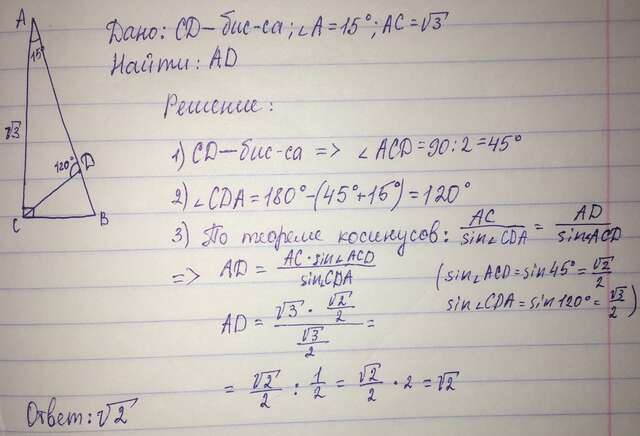 Дано: CD – бис-са; ∠A = 15°; AC = √3
Найти: AD
Решение:
1) CD – бис-са => ∠ACD = 90 : 2 = 45°
2) ∠CDA = 180° – (45° + 15°) = 120°
3) По теореме косинусов: AC/sin∠CDA = AD/sin∠ACD
=> AD = AC · sin∠ACD / sin∠CDA (sin∠ACD = sin 45° = √2/2
AD = (√3 · √2/2) / (√3/2) = sin∠CDA = sin 120° = √3/2)
= √2/2 : 1/2 = √2/2 · 2 = √2
Ответ: √2
A
15°
√3
120°
D
C
B